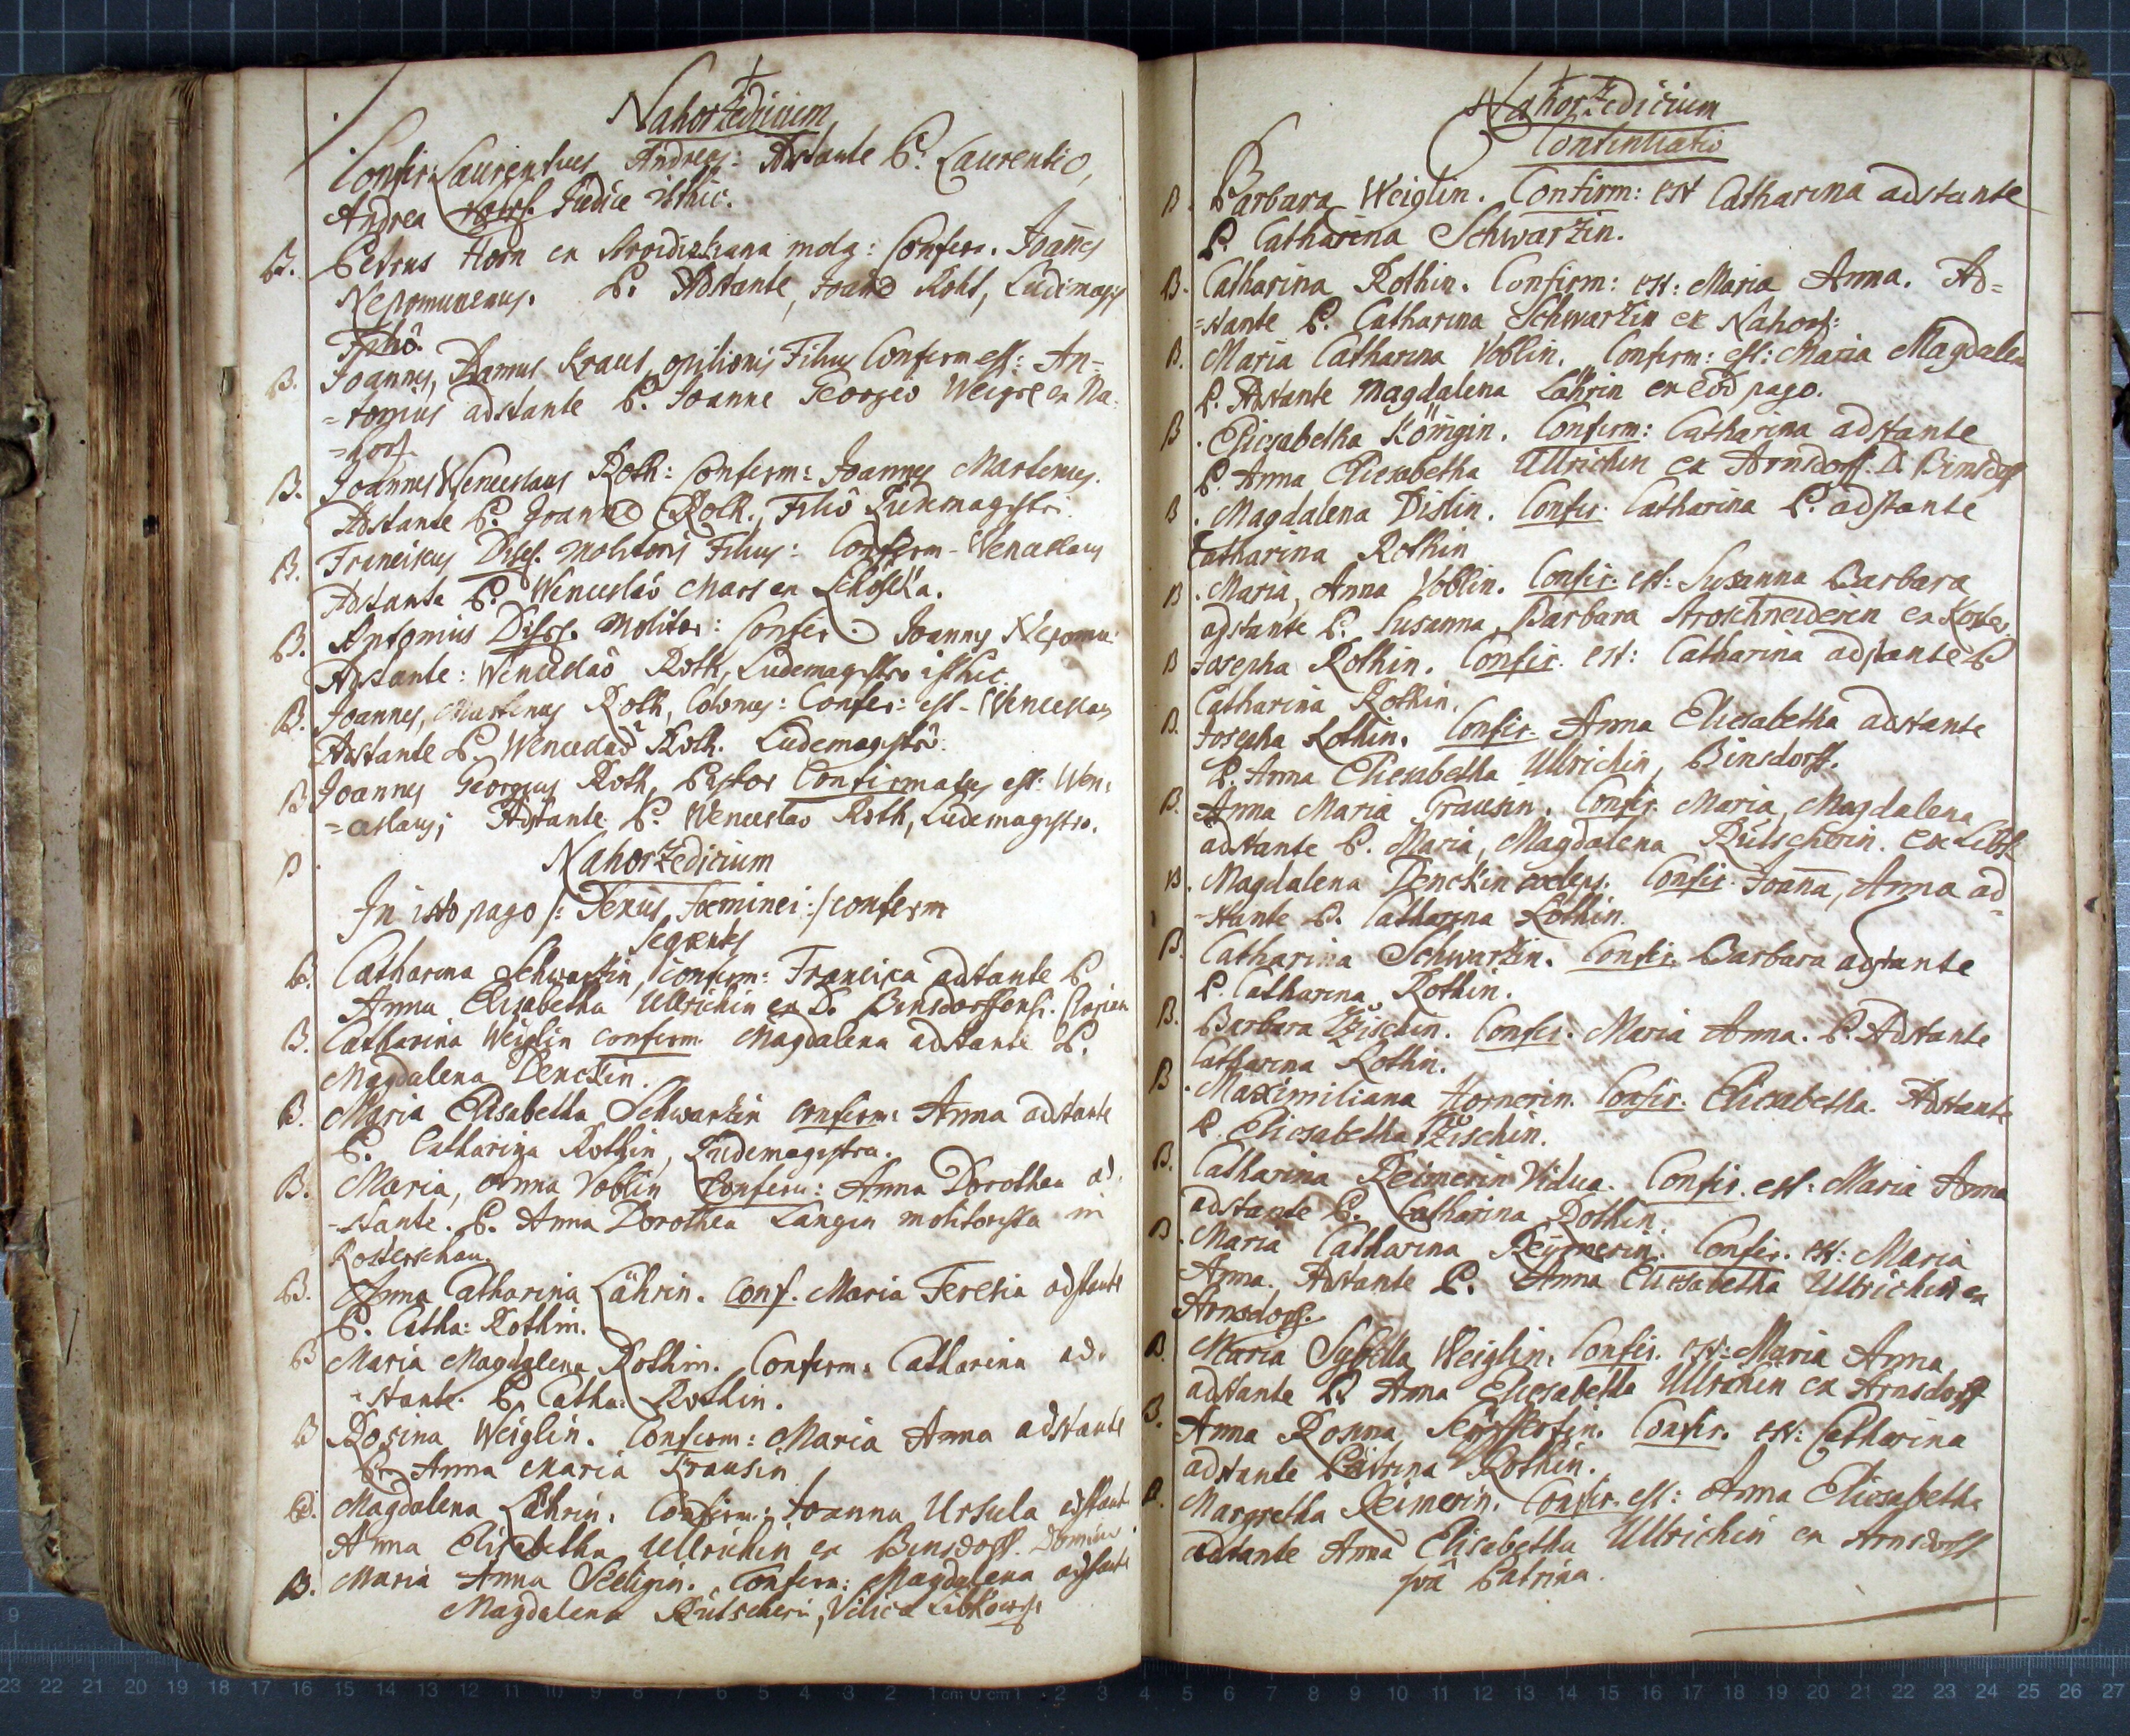 Nahorzedicium
Confir: Laurentius Andreas: Astante P. Laurentio,
Andrea Judice isthic.
B. Petrus Horn ex molg: Confirm. Joanes
Nepomucenus. P. Adstante, Joanne Roht, Ludimagistri
Filio.
B. Joannes, Kraus, opilionis Filius Confirm est: An=
=tonius adstante P. Joanne Georgio Weigle ex Na=
=horz.
B. Joannes Wenceslaus Roth: Conferm: Joannes Martinus.
Adstante P. Joanne Roth, Filio Ludemagistri.
B. Franciscus Disl. molitoris Filius: Conferm- Wenceslaus
Adstante P. Wenceslaô Mars ex
B. Antonius Disl. Molitor: Confer: Joannes Nepomu:
Adstante: Wenceslaô Roth, Ludemagistro isthic.
B. Joannes, Martinus Roth, Colonus: Confer: est- Wenceslaus
Adstante P. Wenceslaô Roth. Ludemagistrô.
B. Joannes Georgius Roth, Pastor Confirmatus est: Wen:
=ceslaus; Adstante P. Wenceslao Roth, Ludemagistro.
Nahorzedicium
In isto pago /: Foeminei :/ conferm
Seqventes
B. Catharina Schwartzin, conferm: Francisca adstante P.
Anna Elisabetha Ullrichin ex D. Binsdorffensi.
B. Catharina Weiglin conferm. Magdalena adstante P.
Magdalena Denckin.
B. Maria Elisabetha Schwartzin conferm: Anna adstante
P. Catharina Rothin, Ludemagistra.
B. Maria, Anna Voblin Conferm: Anna Dorothea ad:
-stante. P. Anna Dorothea Langin molitorissa in
Kosterschan.
B. Anna Catharina Lährin. Conf. Maria Teresia adstante
P. Catha: Rothin.
B Maria Magdalena Rothin. Conferm: Catharina ad:
-stante P. Catha: Rothin.
B Rosina Weiglin. Conferm: Maria Anna adstante
P. Anna Maria Krausin
B. Magdalena Lährin. Confirm: Joanna Ursula adstante
Anna Elisabetha Ullrichin ex Binsdorff. Domin:
B. Maria Anna Seeligin. Conferm: Magdalena adstante
Magdalena Rutscherin, Vilica
Nahorzedicium
Continuatio
B. Barbara Weiglin. Confirm: est Catharina adstante
P. Catharina Schwartzin.
B. Catharina Rothin. Confirm: est: Maria Anna. Ad=
=stante P. Catharina Schwartzin ex Nahorz:
B. Maria Catharina Voblin. Conferm: est: Maria Magdalena
P. Adstante Magdalena Lährin ex eod pago.
B. Eliesabetha Königin. Conferm: Catharina adstante
P. Anna Eliesabetha Ullrichin ex Arnsdorff. D. Binsdorff
B. Magdalena Dislin. Confir. Catharina P. adstante
Catharina Rothin
B. Maria, Anna Voblin. Confir. est: Susanna Barbara
adstante P. Susanna, Barbara
B Josepha Rothin. Confir. est: Catharina adstante P
Catharina Rothin.
B. Josepha Rothin. Confir. Anna Eliesabetha adstante
P. Anna Eliesabetha Ullrichin, Binsdorff.
B. Anna Maria Crausin. Confir. Maria, Magdalena
adstante P. Maria, Magdalena Rutscherin.
B. Magdalena Denckin Confir. Joanna, Anna ad=
-stante P. Catharina Rothin.
B. Catharina Schwartzin. Confir. Barbara adstante
P. Catharina Rothin.
B. Barbara Zischin. Confir. Maria Anna. P. Adstante
Catharina Rothin.
B. Maximiliana Hornerin. Confir. Eliesabetha. Adstante
P. Eliesabetha Zischin.
B. Catharina Reimerin Vidua. Confir. est: Maria Anna
adstante P. Catharina Rothin.
B. Maria Catharina Reijmerin. Confir. est: Maria
Anna. Adstante P. Anna Eliesabetha Ullrichin ex
Arnsdorff.
B. Maria Sybella Weiglin. Confir. est: Maria Anna
adstante P. Anna Eliesabetha Ullrichin ex Arnsdorff
B. Anna Rosina Confir. est: Catharina
adstante Patrina Rothin.
B. Margretha Reimerin. Confir. est: Anna Eliesabetha
adstante Anna Elisabetha Ullrichin ex Arnsdorff
suâ Patrina.
9
23 22 21 20 19 18 17 16 15 14 13 12 11 10 9 8 7 6 5 4 3 2 1 cm 0 cm 1 2 3 4 5 6 7 8 9 10 11 12 13 14 15 16 17 18 19 20 21 22 23 24 25 26 27